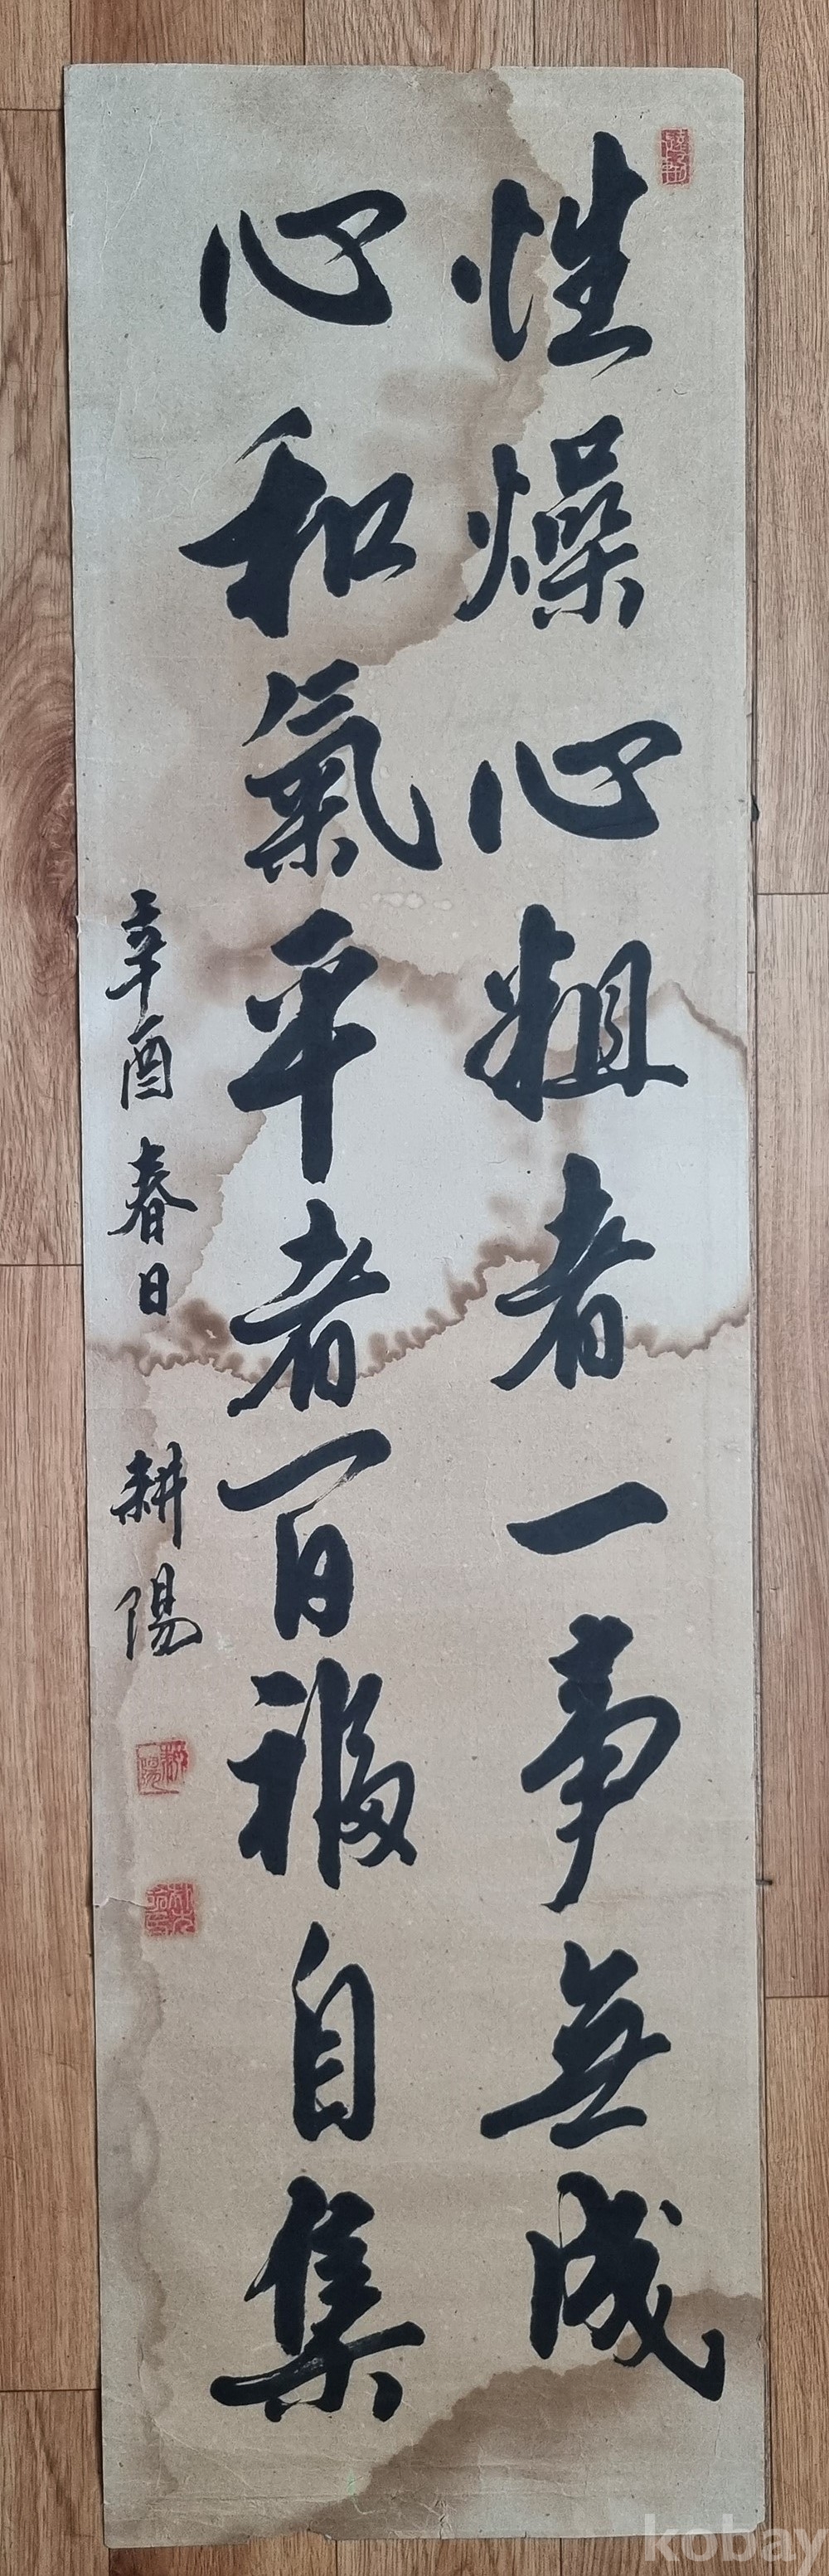 性燥心粗者一事無成
心和氣平者百福自集
辛酉春日 耕陽
kobay